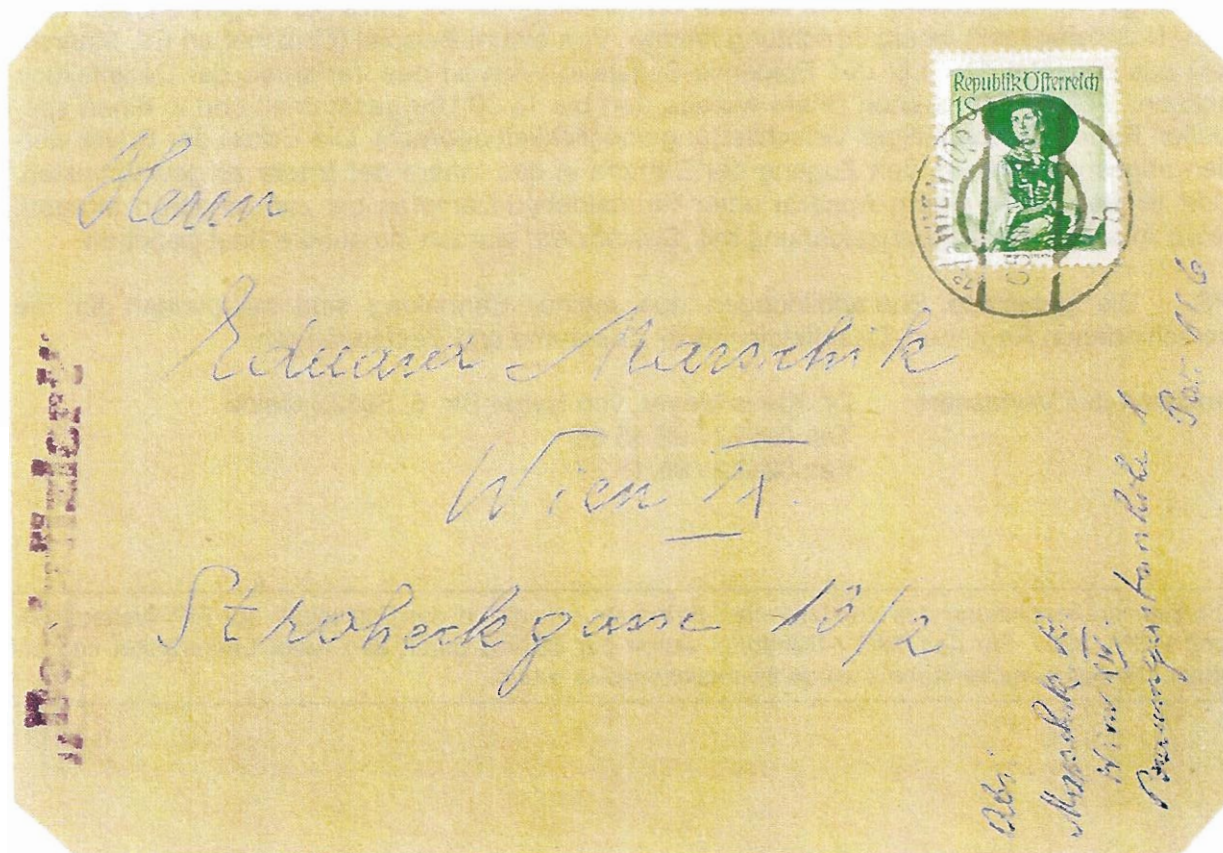 Republik Österreich
1S
WIEN
Herrn
Eduard Marschik
Wien IX.
Stroheckgasse 10/2
"Desinfiziert"
Abs:
Marschik R.
Wien XIV.
Baumgartnerhöhe 1
Pav. 11 6